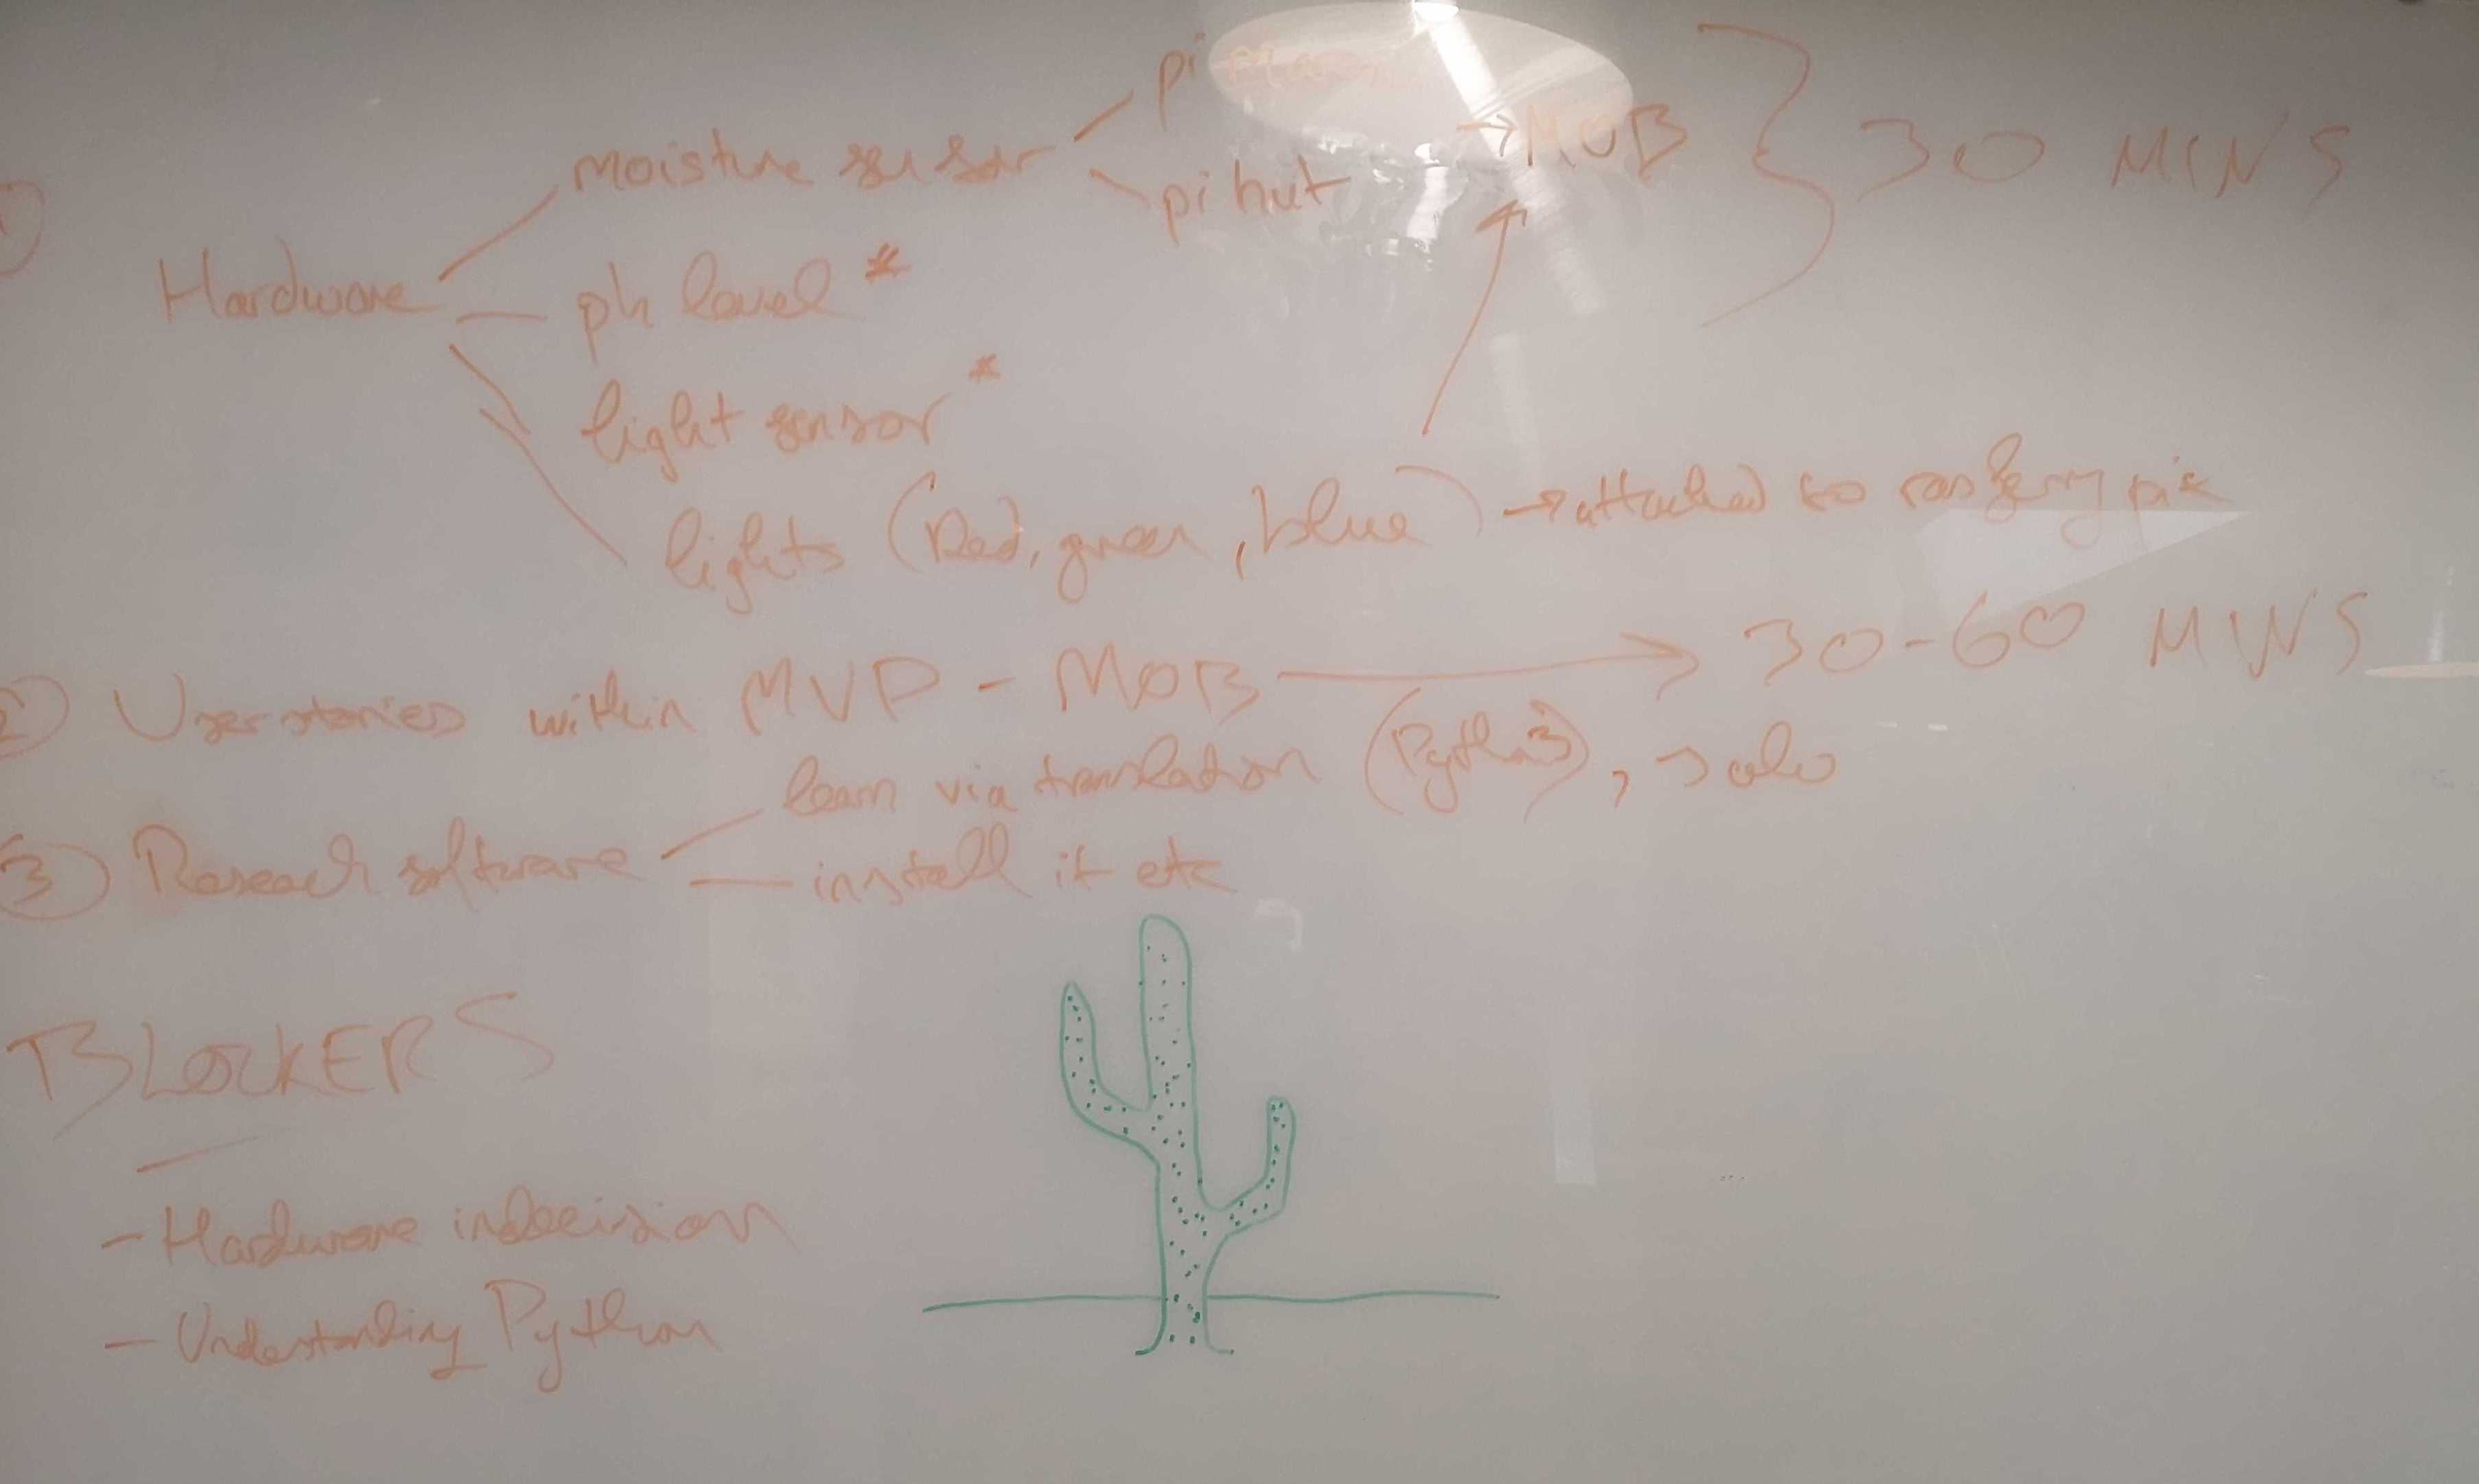 ① Hardware
moisture sensor
pi
pi hut
→ MOB
30 MINS
ph level *
light sensor *
lights (Red, green, blue) → attached to
② User stories within MVP - MOB → 30-60 MINS
③ Reseach software
learn via translation (Python), solo
install it etc
BLOCKERS
- Hardware indecision
- Understanding Python